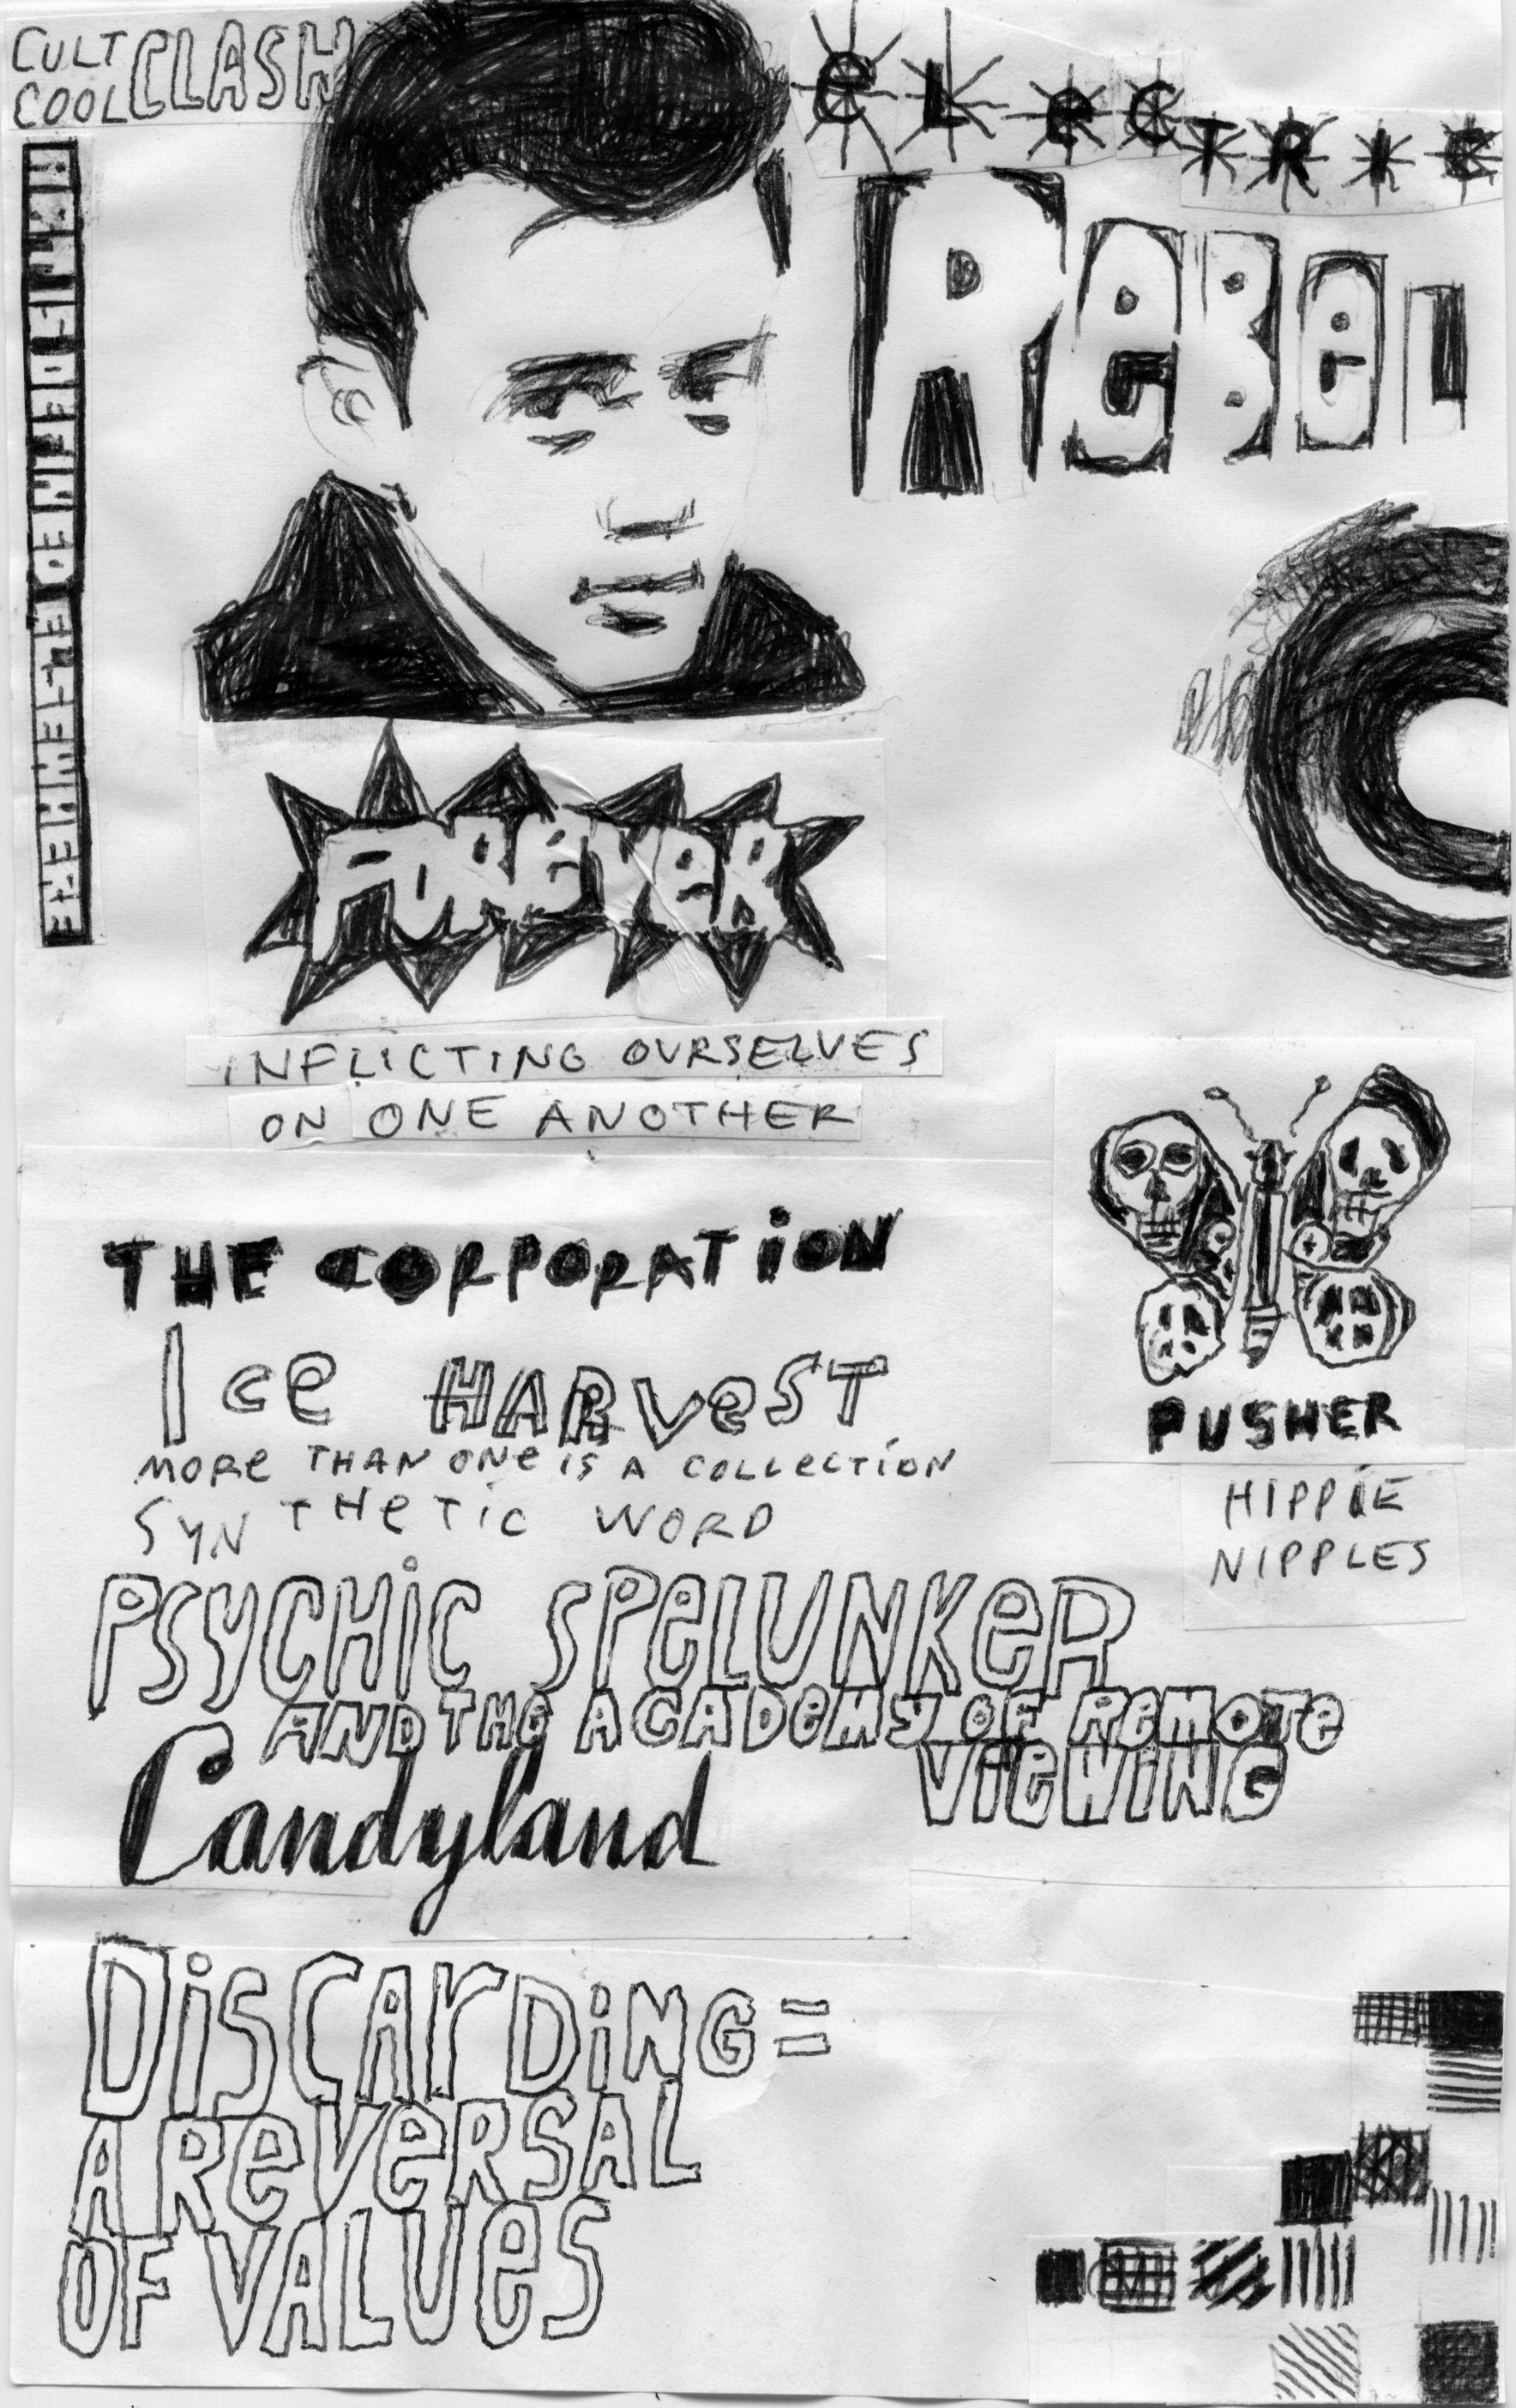 CULT CLASH
COOL
ELECTRIC
REBEL
ART IS DEFINED ELSEWHERE
FOREVER
INFLICTING OURSELVES
ON ONE ANOTHER
THE CORPORATION
ICe HARVeST
MORe THAN ONe iS A COLLeCTiON
SYNTHeTiC WORD
PUSHER
HIPPIE
NIPPLES
PSYCHiC SPeLUNKeR
AND THe ACADeMY OF ReMOTe
VieWiNG
Candyland
DiSCArDiNG =
A ReVeRSAL
OF VALUeS